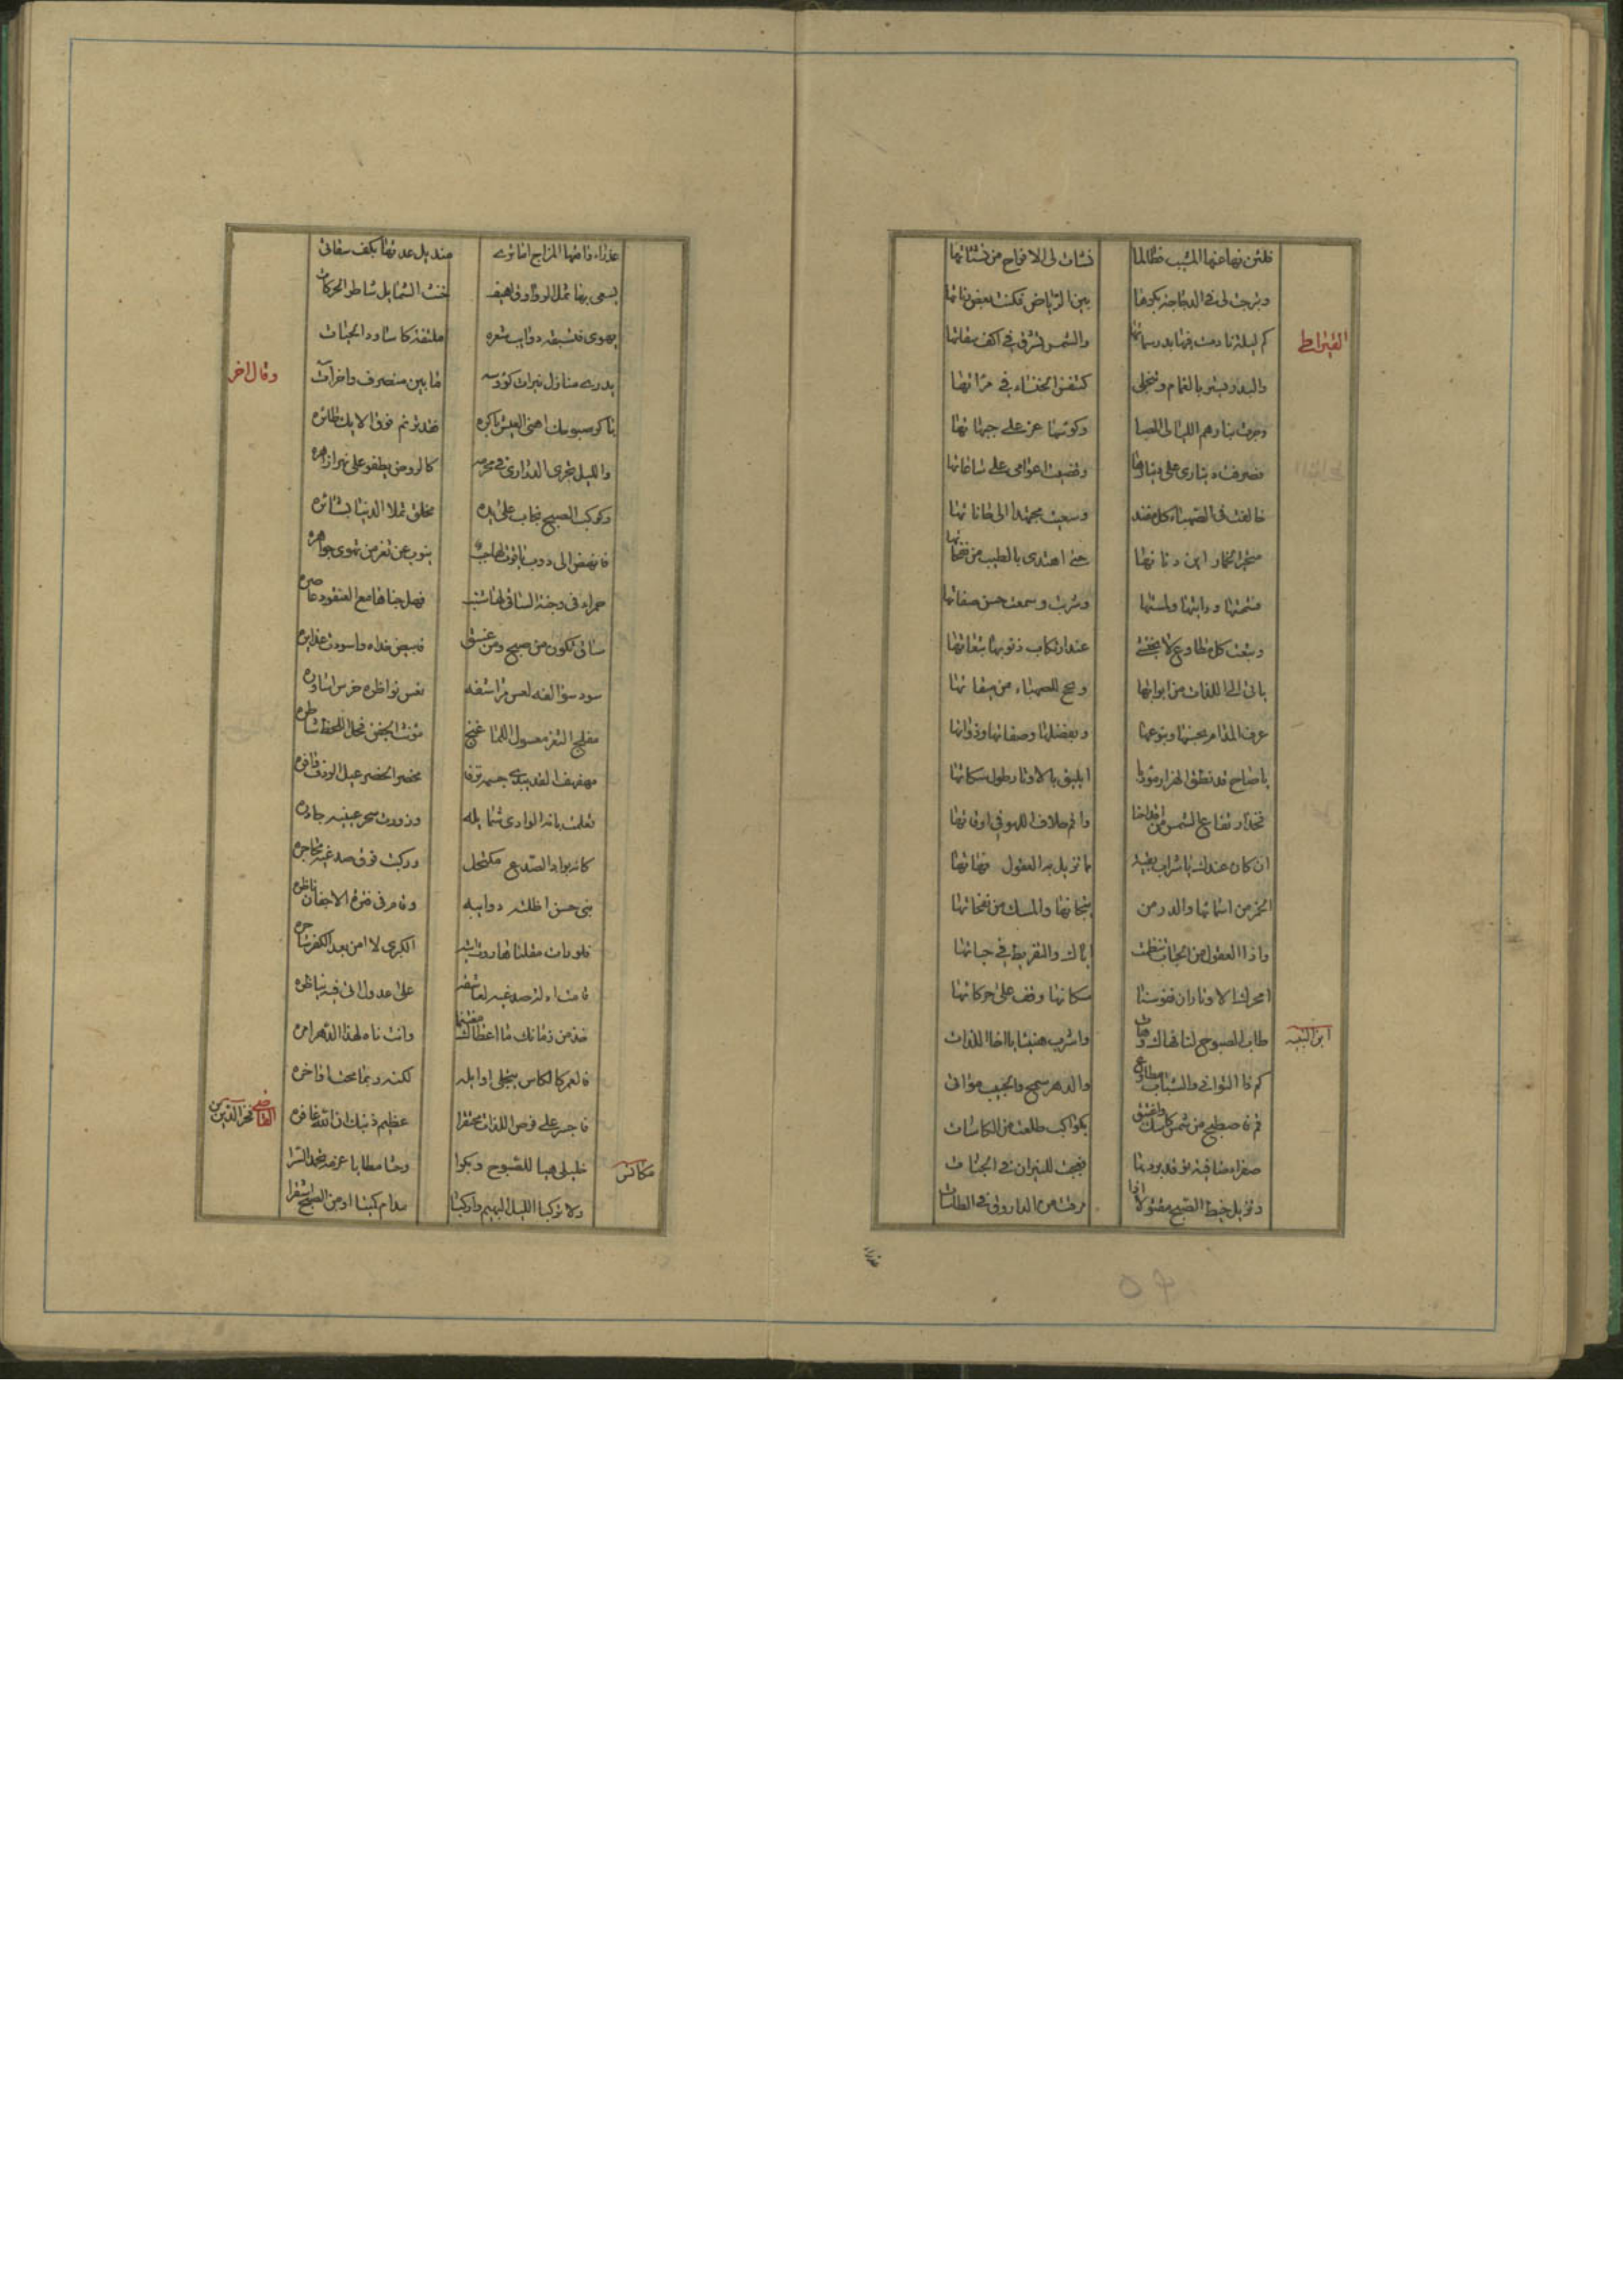 فلئن نهاعنها المشيب فطالما نشات لى الافراح من نشاتها
وبرحت لى فى الدجا
بين الرياض فكنت بعض
القيراطى
كم ليلة نادمت بدر سمائها والشمس تشرق فى اكف سقاتها
والبدر يستر بالغمام وينجلى كتنفس الحسناء فى مرآتها
وجرت بنا دهم الليالى للصبا وكؤسنا غرر على جبهاتها
فصرفت دينارى على دينارها وقضيت اعوامى على ساعاتها
خالفت فى الصهباء كل مفند وسعيت مجتهدا الى حاناتها
متحير الخمار اين دنانها حتى اهتدى بالطيب من نفحاتها
فشممتها ورايتها ولمستها وشربت وسمعت حسن صفاتها
وتبعت كل مطاوع لا يختشى عند ارتكاب ذنوبه تبعاتها
ياتى الى اللذات من ابوابها ويحج للصهباء من ميقاتها
عرف المدام بجنسها وبنوعها وبفضلها وصفاتها وذواتها
يا صاح قد نطق الهزار مؤذنا ايليق بالاوتار طول سكاتها
فخذ ارتفاع الشمس من اقداحنا واقم صلاة اللهو فى اوقاتها
ان كان عندك يا شراب بقية مما تزيل به العقول فهاتها
الخمر من اسمائها والدر من تيجانها والمسك من نفحاتها
واذا العقود من الحباب تنظمت اياك والتفريط فى حباتها
امحرك الاوتار ان نفوسنا سكناتها وقف على حركاتها
ابن النبيه
طاب الصبوح لنا فهاك وهات واشرب هنيئا يا اخا اللذات
كم ذا التوانى والشباب مطاوع والدهر سمح والحبيب مواتى
قم فاصطبح من شمس كاسك واغتبق بكواكب طلعت من الكاسات
صفراء صافية توقد بردها فعجبت للنيران فى الجنات
وتزيل خيط الصبح مفتولا اذا مرقت من الراووق فى الطاسات
عذراء واقعها المزاج اما ترى منديل عذرتها بكف سقاتى
يسعى بها عبل الروادف اهيف خنث الشمايل شاطر الحركات
يهوى فتسبقه ذوايب شعره ملتفة كاساود الحيات
يدرى منازل نيرات كؤوسه ما بين منصرف واخر آت
وقال اخر
باكر صبوحك اهنى العيش باكره فقد ترنم فوق الايك طائره
والليل تجرى الدرارى فى مجرته كالروض يطفو على نهر ازاهره
وكوكب الصبح نجاب على يده مخلق تملا الدنيا بشائره
فانهض الى ذوب ياقوت لها حبب ينوب عن ثغر من تهوى جواهره
حمراء فى وجنة الساقى لها شبه فهل جناها مع العنقود عاصره
ساق تكون من صبح ومن غسق فابيض خداه واسودت غدايره
سود سوالفه لعس مراشفه نعس نواظره خرس اساوره
مفلج الثغر معسول اللما غنج مؤنث الجفن فحل اللحظ شاطره
مهفهف القد يبدى جسمه ترفا مخصر الخصر عبل الردف وافره
تعلمت بانة الوادى شمايله وزورت سحر عينيه جاذره
كانه بواد الصدغ مكتحل وركبت فوق صدغيه محاجره
نبى حسن اظلته ذوايبه وقام فى فترة الاجفان ناظره
فلو رات مقلتا هاروت آيته الكبرى لامن بعد الكفر ساحره
قامت ادلة صدغيه لعاشقه على عذول اتى فيه يناظره
خذ من زمانك ما اعطاك مغتنما وانت ناه لهذا الدهر امره
فالعمر كالكاس يستحلى اوايله لكنه ربما مجت اواخره
فاجسر على فرص اللذات محتقرا عظيم ذنبك ان الله غافره
القاضى فخر الدين بن مكانس
خليلى هبا للصبوح وبكرا وحثا مطايا
ولا تركبا الليل البهيم واركبا